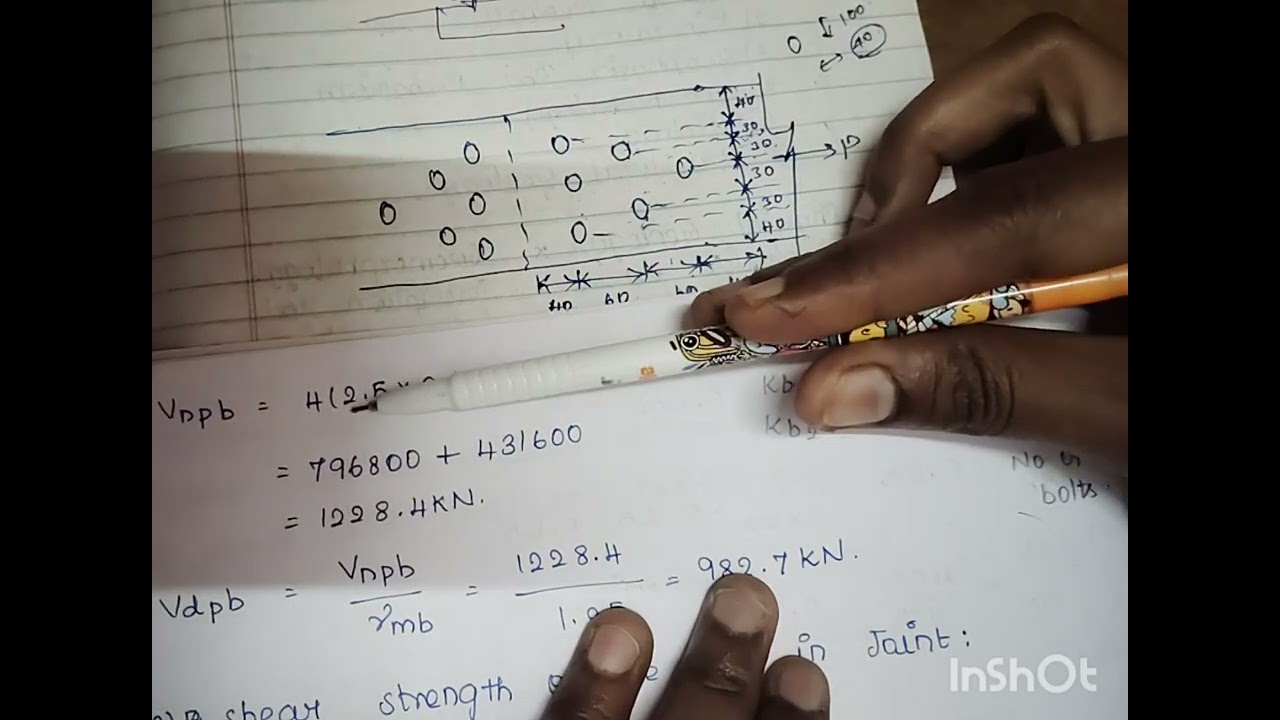 100
40
40
30
30
P
30
30
40
40
60
60
Vnpb = 4(2.5 x
= 796800 + 431600
= 1228.4KN.
Kb
Kb
No of
bolts.
Vdpb = Vnpb / γmb = 1228.4 / 1. = 982.7 KN.
shear strength in Joint:
InShOt